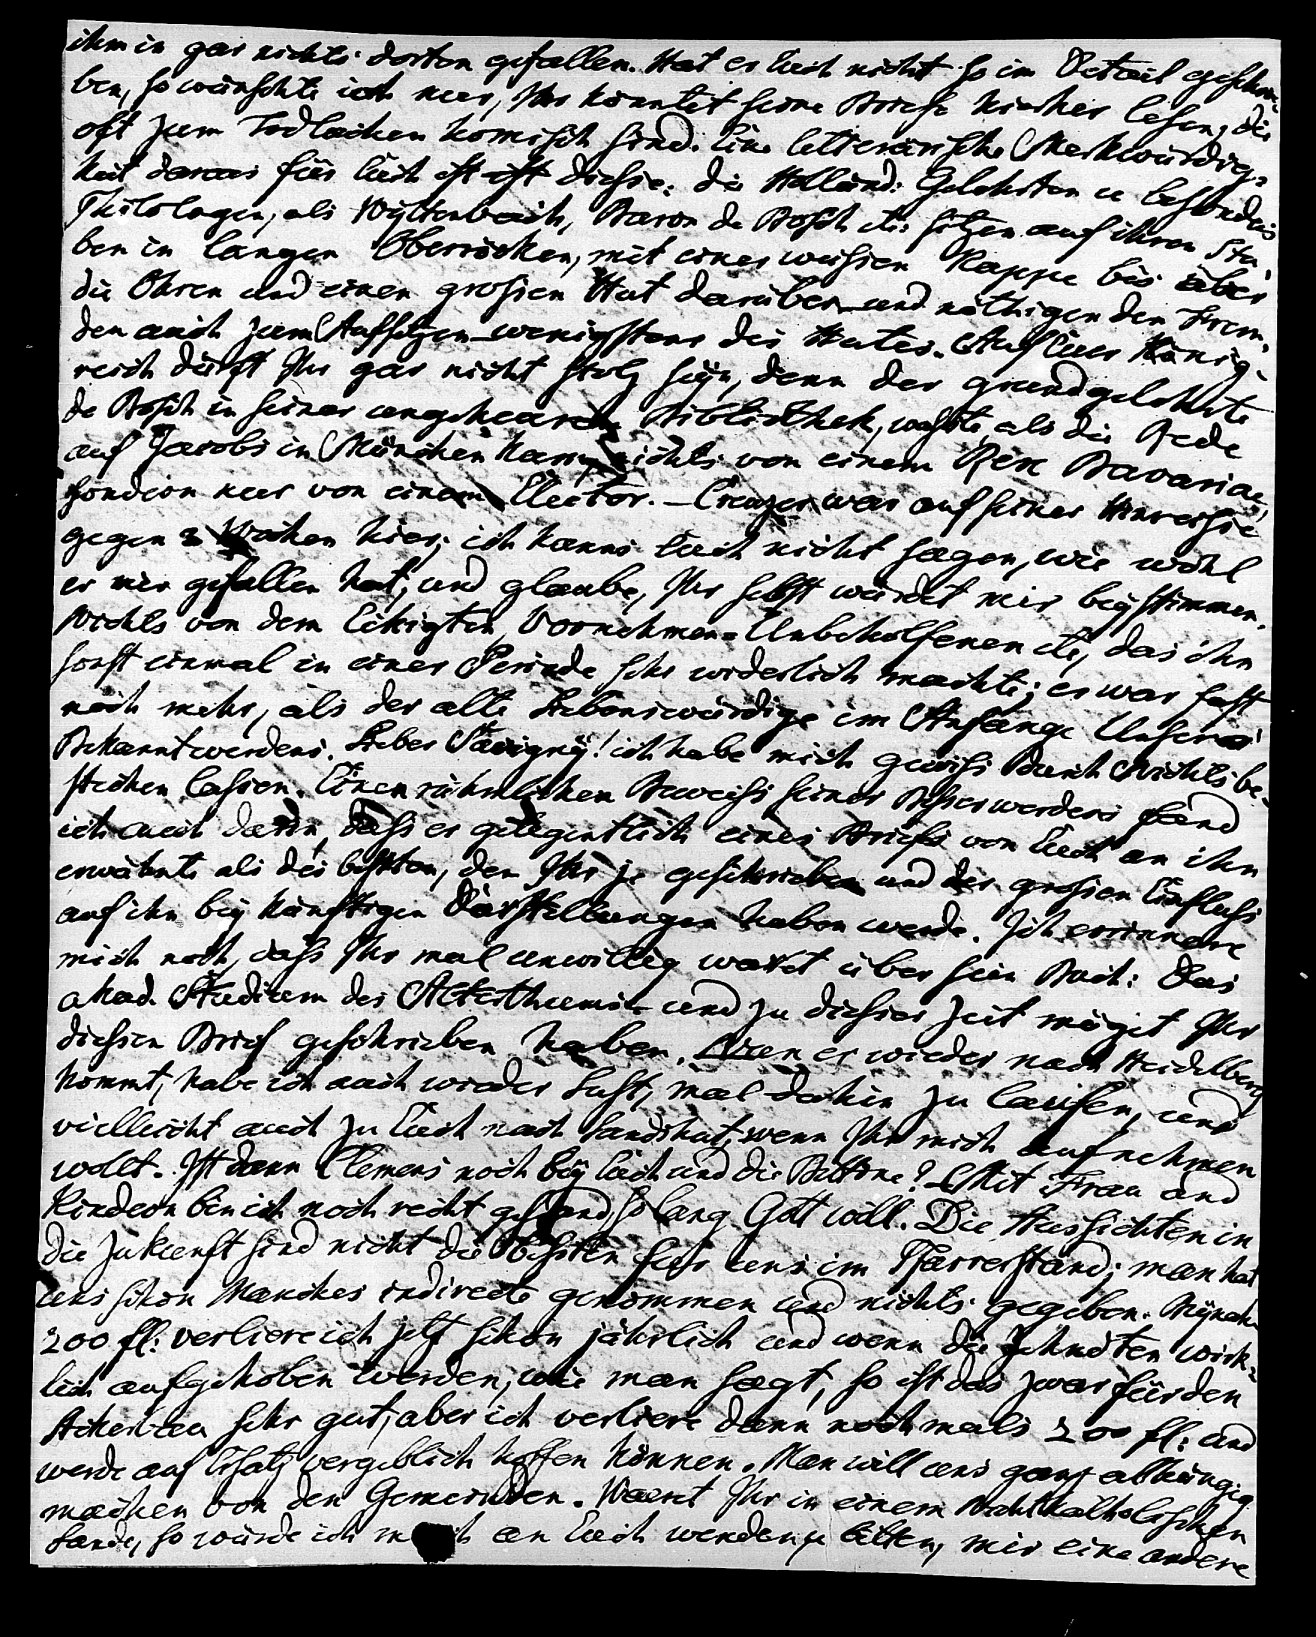 ihm in gar nichts dorten gefallen. Hat er Euch nicht so im Detail geschrie-
ben, so wünschte ich nur, Ihr könntet seine Briefe hierher lesen, die
oft zum Todlachen komisch sind. Eine litterärische Merkwürdig-
keit daraus für Euch ist diese: die Holländ: Gelehrten u besonders
Philologen, als Wyttenbach, Baron de Bosch etc: sitzen auf ihren Stu-
ben in langen Oberröcken, mit einer weissen Kappe bis über
die Ohren und einen grossen Hut darüber und nöthigen den Frem-
den auch zum Aufsetzen wenigstens des Hutes. Auf Euer König-
reich dürft Ihr gar nicht stolz seyn, denn der grundgelehrte
de Bosch in seiner ungeheuren Bibliothek, wusste, als die Rede
auf Jacobs in München kam, nichts von einem Rex Bavariae,
sondern nur von einem Elector. – Creuzer war auf seiner Hinreise
gegen 3 Wochen hier; ich kanns Euch nicht sagen, wie wohl
er mir gefallen hat, und glaube, Ihr selbst würdet mir beystimmen.
Nichts von dem Eckigten, Vornehmen-Unbeholfenen etc, das ihn
sonst einmal in einer Periode sehr widerlich machte; er war fast
noch mehr, als der alte Liebenswürdige im Anfange Unseres
Bekanntwerdens. Lieber Savigny! ich habe mich gewiss durch Nichts be-
stechen lassen. Einen rühmlichen Beweiss seines Besserwerdens fand
ich auch darin, dass er gelegentlich eines Briefs von Euch an ihn
erwähnte als des besten, den Ihr je geschrieben und der grossen Einfluss
auf ihn bey künftigen Darstellungen haben werde. Ich erinnere
mich noch, dass Ihr mal unwillig waret über sein Buch: Das
akad. Studium des Alterthums – und zu dieser Zeit möget Ihr
diesen Brief geschrieben haben. Wenn er wieder nach Heidelberg
kommt, habe ich auch wieder Lust, mal dahin zu laufen, und
vielleicht auch zu Euch nach Landshut, wenn Ihr mich aufnehmen
wollt. Ist dann Clemens noch bey Euch und die Bettine? – Mit Frau und
Kindern bin ich noch recht gesund, so lang Gott will. Die Aussichten in
die Zukunft sind nicht die besten für uns im Pfarrerstand; man hat
uns schon Manches indirecte genommen und nichts gegeben.
200 fl: verliere ich jetzt schon jährlich und wenn die Zehndten wirk-
lich aufgehoben werden, wie man sagt, so ist das zwar für den
Ackerbau sehr gut, aber ich verliere dann nochmals 200 fl: und
werde auf Ersatz vergeblich hoffen können. Man will uns ganz abhängig
machen von den Gemeinden. Waeret Ihr in einem Nichtkatholischen
Lande, so würde ich mich an Euch wenden u bitten, mir eine andere